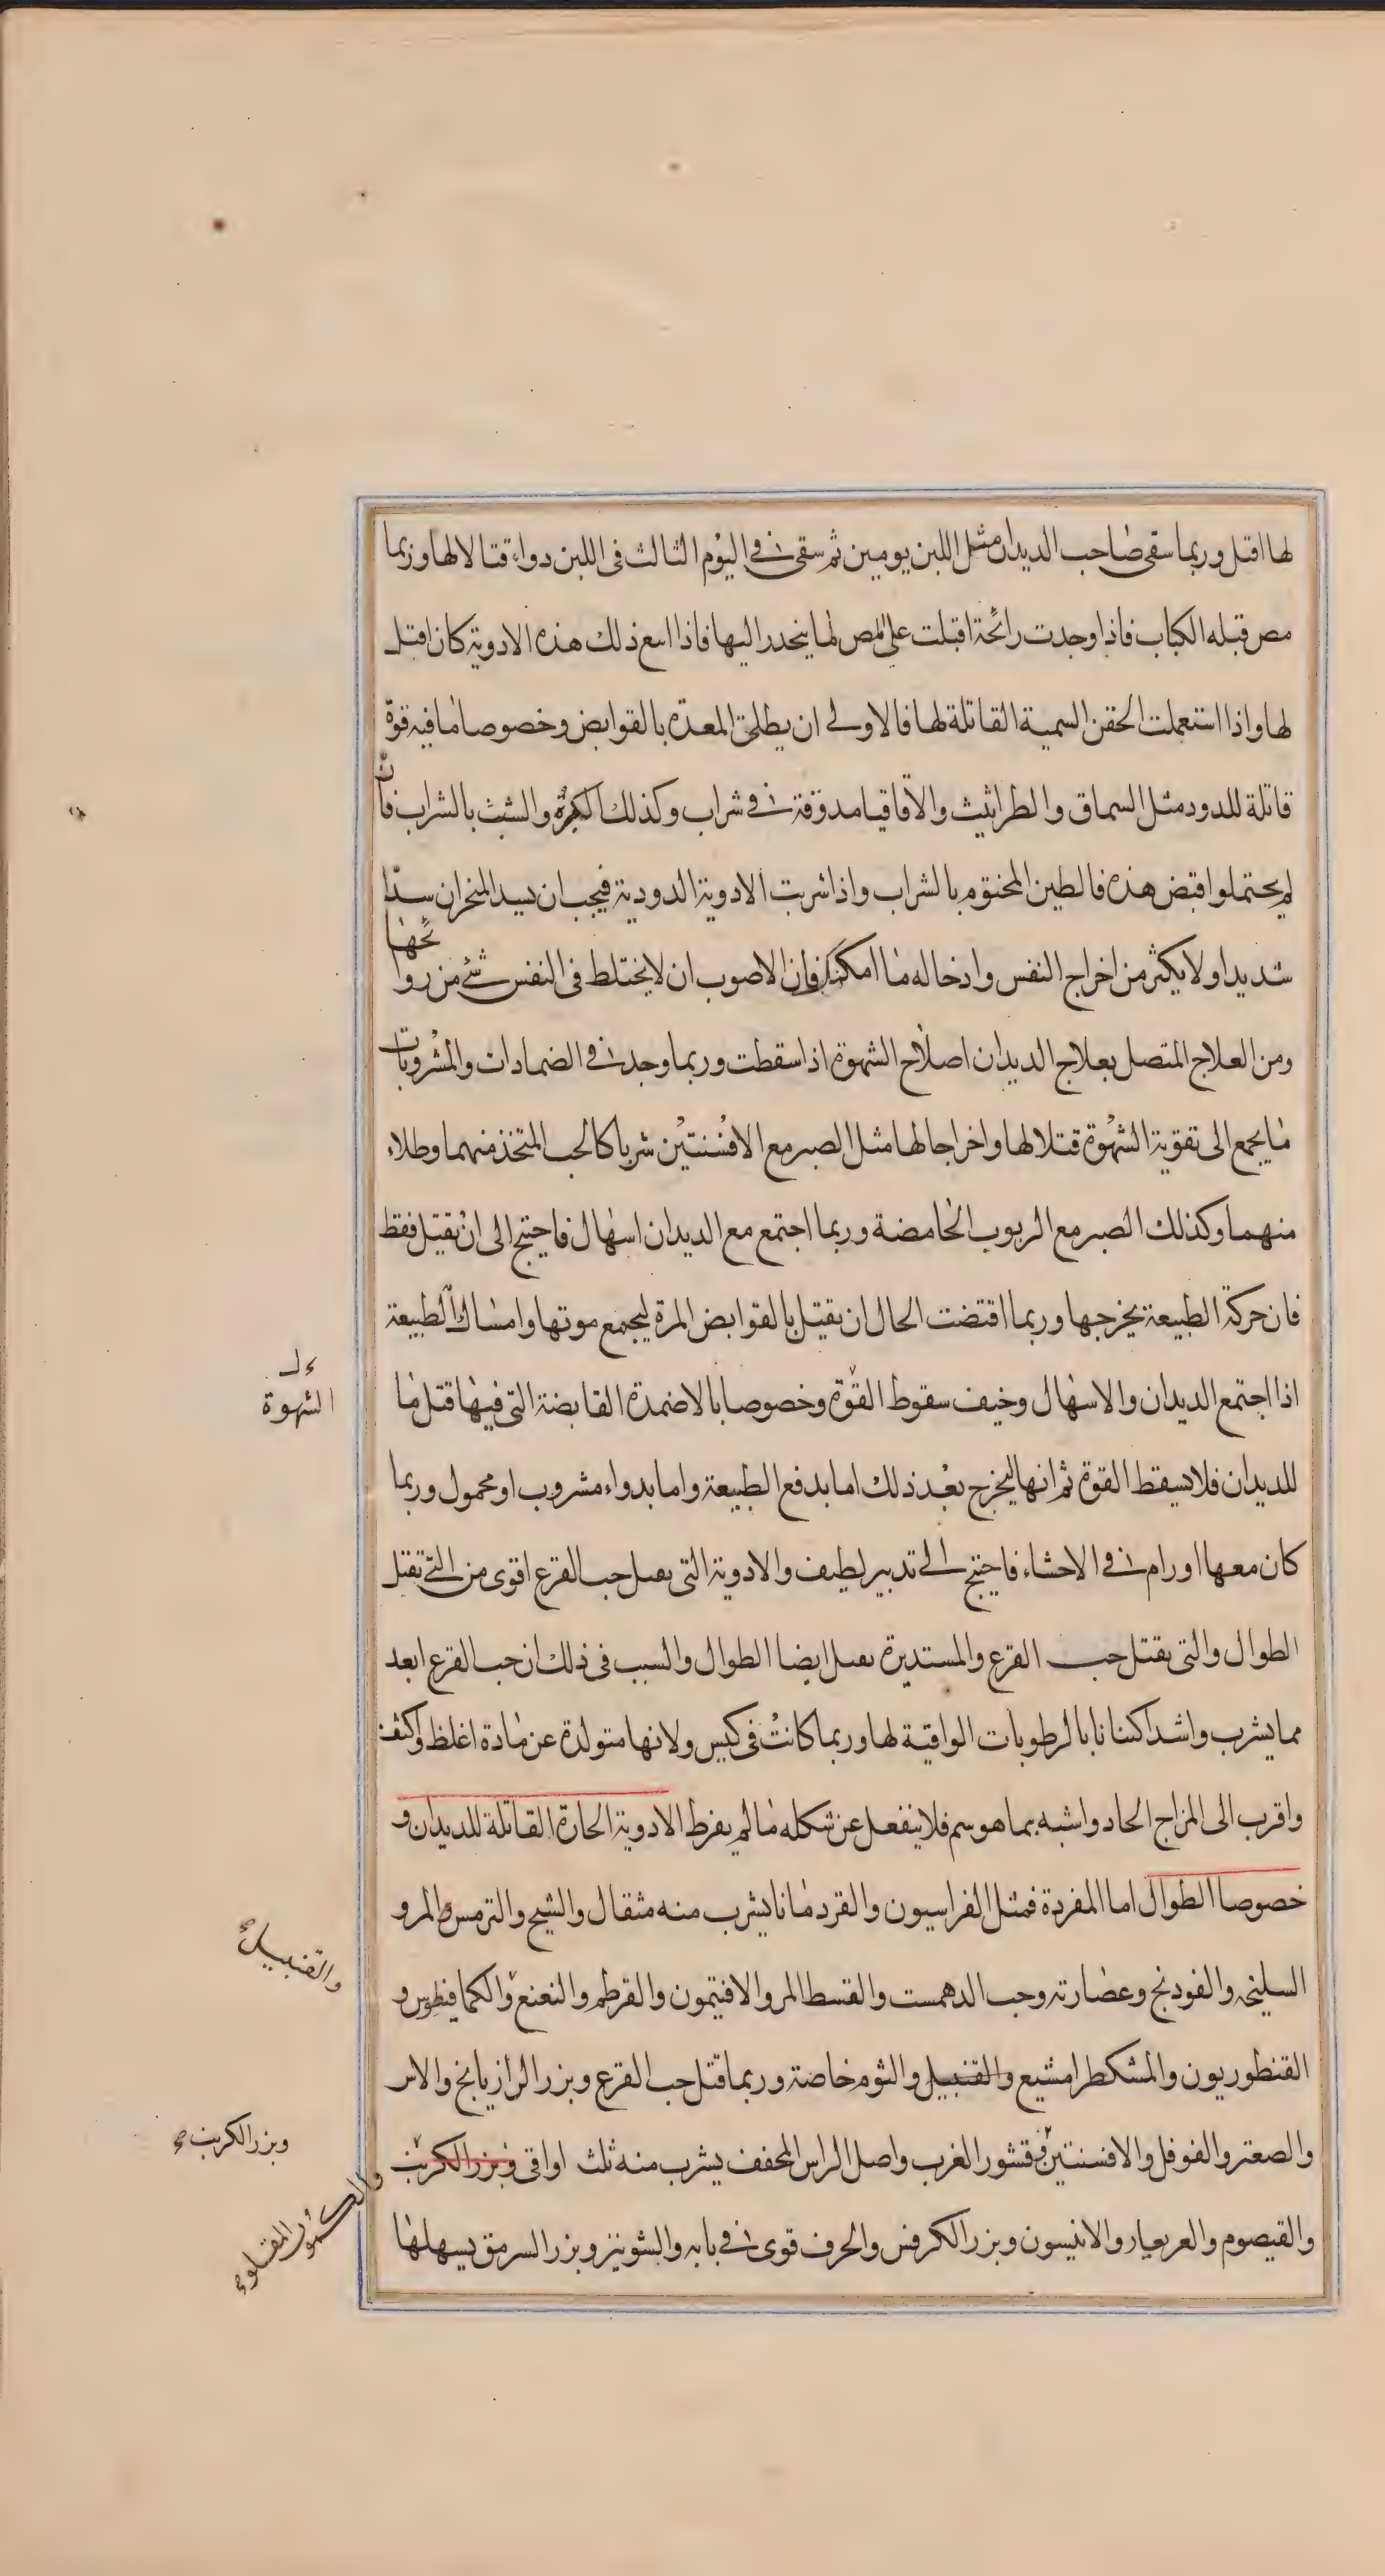 لها اقتل وربما سقى صاحب الديدان مثل اللبن يومين ثم سقى في اليوم الثالث فى اللبن دواء قتالا لها وربما
مص قبله الكباب فاذا وجدت رائحة اقبلت على المص لما ينحدر اليها فاذا اتبع ذلك هذه الادوية كان اقتل
لها واذا استعملت الحقن السمية القاتلة لها فالاولى ان يطلى المعدة بالقوابض وخصوصا ما فيه قوة
قاتلة للدود مثل السماق والطراثيث والاقاقيا مدوفة في شراب وكذلك الكبره والشبث بالشراب فان
لم يحتملوا قبض هذه فالطين المختوم بالشراب واذا شربت الادوية الدودية فيجب ان يسد المنخران سدا
شديدا ولا يكثر من اخراج النفس وادخاله ما امكن فان الاصوب ان لا يختلط فى النفس شئ من روائحها
ومن العلاج المتصل بعلاج الديدان اصلاح الشهوة اذا سقطت وربما وجدت في الضمادات والمشروبات
ما يجمع الى تقوية الشهوة قتلا لها واخراجا لها مثل الصبر مع الافسنتين شربا كالحب المتخذ منهما وطلاء
منهما وكذلك الصبر مع الربوب الحامضة وربما اجتمع مع الديدان اسهال فاحتيج الى ان يقتل فقط
فان حركة الطبيعة يخرجها وربما اقتضت الحال ان يقتل بالقوابض المرة ليجتمع موتها وامساك الطبيعة
اذا اجتمع الديدان والاسهال وخيف سقوط القوة وخصوصا بالاضمدة القابضة التى فيها قتل ما
للديدان فلا يسقط القوة ثم انها ليخرج بعد ذلك اما بدفع الطبيعة واما بدواء مشروب او محمول وربما
كان معها اورام في الاحشاء فاحتيج الى تدبير لطيف والادوية التى يقتل حب القرع اقوى من التى تقتل
الطوال والتى يقتل حب القرع والمستديرة يقتل ايضا الطوال والسبب فى ذلك ان حب القرع ابعد
مما يشرب واشد اكتنانا بالرطوبات الواقية لها وربما كانت فى كيس ولانها متولدة عن مادة اغلظ واكثف
واقرب الى المزاج الحاد واشبه بما هو سم فلا ينفعل عن شكله ما لم يفرط الادوية الحارة القاتلة للديدان و
خصوصا الطوال اما المفردة فمثل الفراسيون والقردمانا يشرب منه مثقال والشيح والترمس المر و
السليخة والفودنج وعصارته وحب الدهمست والقسط المر والافتيمون والقرطم والنعنع والكمافيطوس و
القنطوريون والمشكطرامشيع والقنبيل والثوم خاصة وربما قتل حب القرع وبزر الرازيانج والاس
والصعتر والفوفل والافسنتين وقشور الغرب واصل الراس المجفف يشرب منه ثلث اواقى وبزر الكرنب
والقيصوم والعربعيار والانيسون وبزر الكرفس والحرف قوى في بابه والشونيز وبزر السرمق يسهلها
الشهوة
والقنبيل
وبزر الكرنب
والكمون المقلو